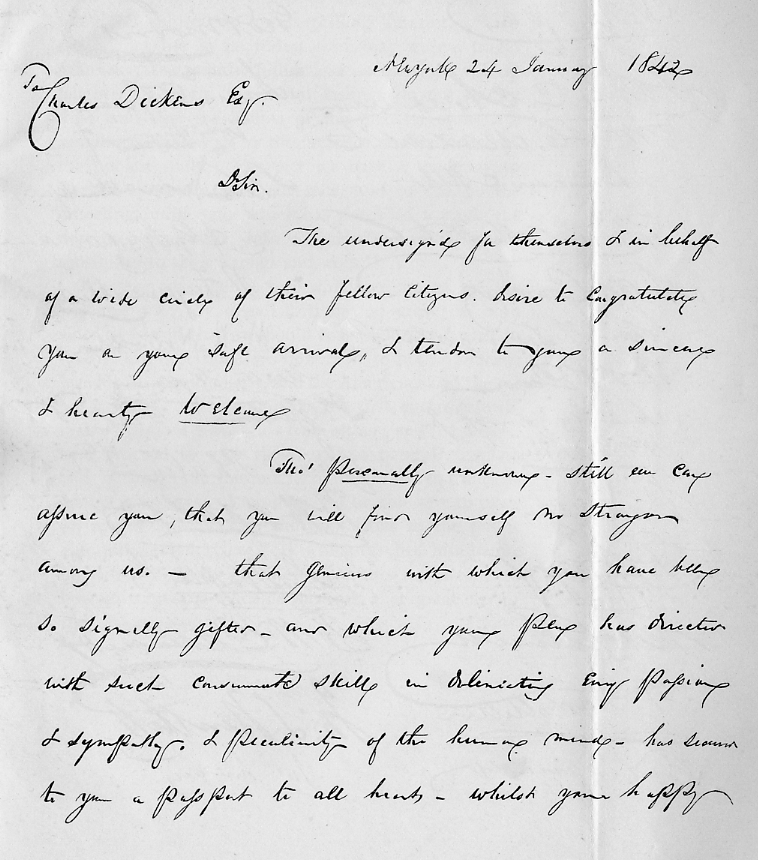 NewYork 24 January 1842
To
Charles Dickens Esq.
D Sir.
The undersign'd for themselves & in behalf
of a wide circle of their fellow Citizens. desire to Congratulate
you on your safe arrival, & tender to you a sincere
& hearty Welcome
Tho' personally unknown - still we can
assure you, that you will find yourself no stranger
among us. - that genius with which you have been
so signally gifted - and which your pen has directed
with such consummate skill in delineating every passion
& sympathy. & peculiarity of the human mind - has secured
to you a passport to all hearts - whilst your happy